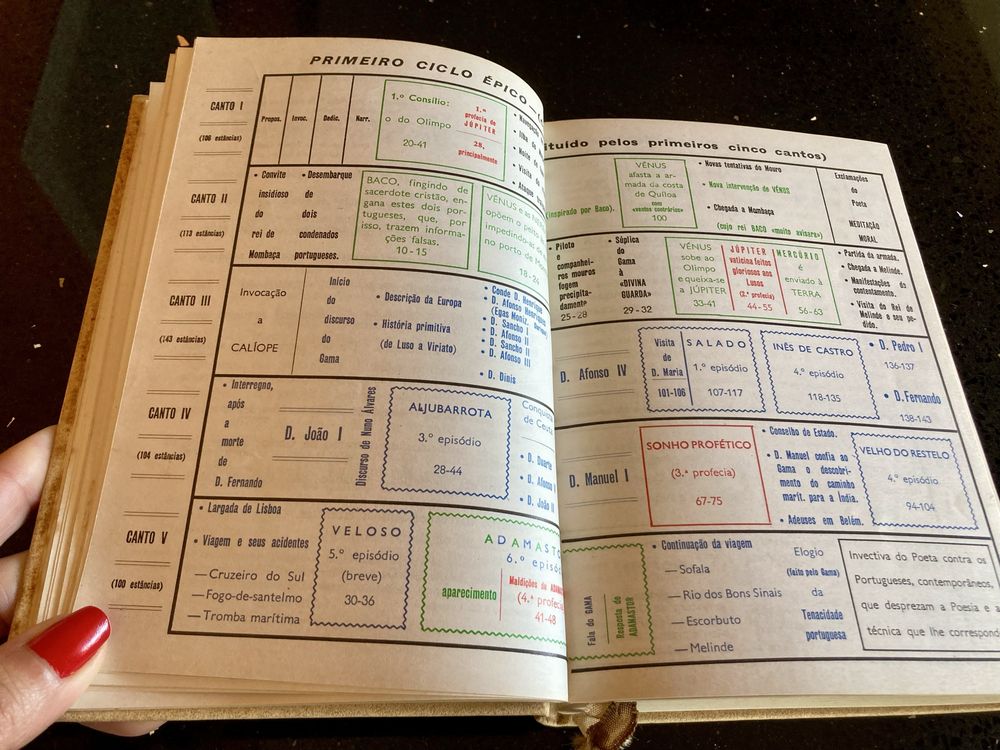 PRIMEIRO CICLO ÉPICO — (
CANTO I
(106 estâncias)
Propos.
Invoc.
Dedic.
Narr.
1.º Consílio:
o do Olimpo
20-41
1.ª
profecia de
JÚPITER
28,
principalmente
CANTO II
(113 estâncias)
• Convite
insidioso
do
rei de
Mombaça
• Desembarque
de
dois
condenados
portugueses.
BACO, fingindo de
sacerdote cristão, en-
gana estes dois por-
tugueses, que, por
isso, trazem informa-
ções falsas.
10-15
VÉNUS e as
opõem o peito
impedindo-as de
no porto de
18-24
CANTO III
(143 estâncias)
Invocação
a
CALÍOPE
Início
do
discurso
do
Gama
• Descrição da Europa
• História primitiva
(de Luso a Viriato)
• Conde D. Henrique
• D. Afonso Henriques
(Egas Moniz,
• D. Sancho I
• D. Afonso II
• D. Sancho II
• D. Afonso III
• D. Dinis
CANTO IV
(104 estâncias)
• Interregno,
após
a
morte
de
D. Fernando
D. João I
Discurso de Nuno Álvares
ALJUBARROTA
3.º episódio
28-44
Conquista
de Ceuta
• D. Duarte
• D. Afonso
• D. João II
CANTO V
(100 estâncias)
• Largada de Lisboa
• Viagem e seus acidentes
— Cruzeiro do Sul
— Fogo-de-santelmo
— Tromba marítima
VELOSO
5.º episódio
(breve)
30-36
ADAMASTO
6.º episó
aparecimento
Maldições do
(4.ª profecia
41-48
ituído pelos primeiros cinco cantos)
(inspirado por Baco).
VÉNUS
afasta a ar-
mada da costa
de Quíloa
com
«ventos contrários»
100
• Novas tentativas do Mouro
• Nova intervenção de VÉNUS
• Chegada a Mombaça
(cujo rei BACO «muito avisara»)
Exclamações
do
Poeta
MEDITAÇÃO
MORAL
• Piloto
e
companhei-
ros mouros
fogem
precipita-
damente
25-28
• Súplica
do
Gama
à
«DIVINA
GUARDA»
29-32
VÉNUS
sobe ao
Olimpo
e queixa-se
a JÚPITER
33-41
JÚPITER
vaticina feitos
gloriosos aos
Lusos
(2.ª profecia)
44-55
MERCÚRIO
é
enviado à
TERRA
56-63
• Partida da armada.
• Chegada a Melinde.
• Manifestações de
contentamento.
• Visita do Rei de
Melinde e seu pe-
dido.
D. Afonso IV
Visita
de
D. Maria
101-106
SALADO
1.º episódio
107-117
INÊS DE CASTRO
4.º episódio
118-135
• D. Pedro I
136-137
• D. Fernando
138-143
D. Manuel I
SONHO PROFÉTICO
(3.ª profecia)
67-75
• Conselho de Estado.
• D. Manuel confia ao
Gama o descobri-
mento do caminho
marít. para a Índia.
• Adeuses em Belém.
VELHO DO RESTELO
4.º episódio
94-104
Fala do GAMA
Resposta do
ADAMASTOR
• Continuação da viagem
— Sofala
— Rio dos Bons Sinais
— Escorbuto
— Melinde
Elogio
(feito pelo Gama)
da
Tenacidade
portuguesa
Invectiva do Poeta contra os
Portugueses, contemporâneos,
que desprezam a Poesia e a
técnica que lhe correspond